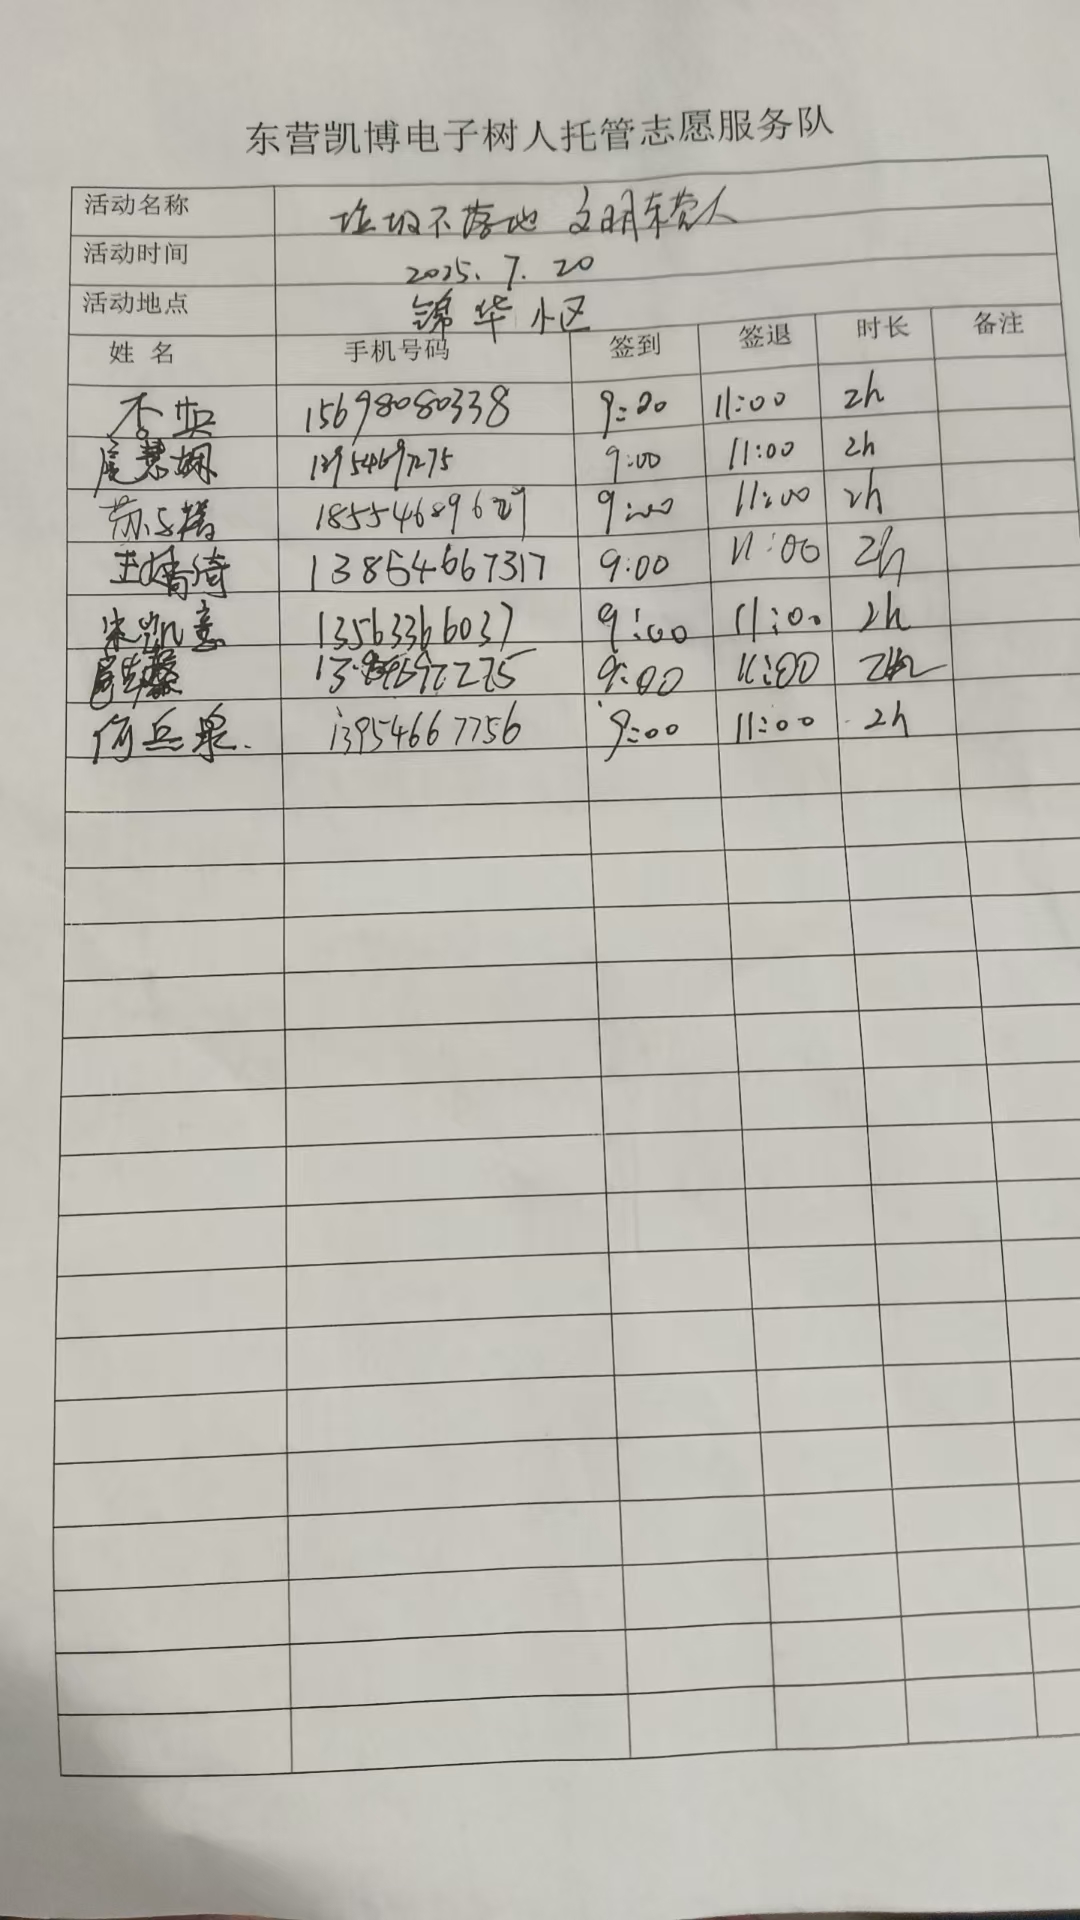 东营凯博电子树人托管志愿服务队
活动名称 垃圾不落地 文明东营人
活动时间 2025.7.20
活动地点 锦华小区
姓名 手机号码 签到 签退 时长 备注
15698080338 9:00 11:00 2h
13954697275 9:00 11:00 2h
9:00 11:00 2h
13854667317 9:00 11:00 2h
宋凯意 13563366037 9:00 11:00 2h
9:00 11:00
何兵泉 13954667756 9:00 11:00 2h